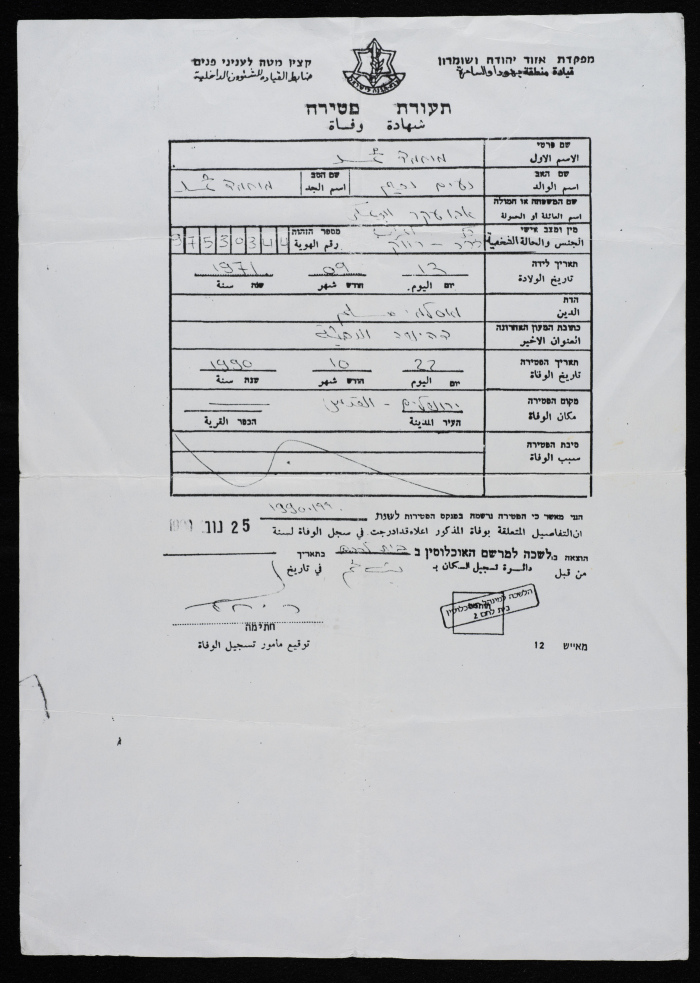 מפקדת אזור יהודה ושומרון
قيادة منطقة يهودا والسامرة
קצין מטה לעניני פנים
ضابط القيادة للشؤون الداخلية
תעודת פטירה
شهادة وفاة
שם פרטי
الاسم الاول
מוחמד محمد
שם האב
اسم الوالد
נעים
שם הסב
اسم الجد
מוחמד محمد
שם המשפחה או חמולה
اسم العائلة او الحمولة
מין ומצב אישי
الجنس والحالة الشخصية
זכר - רווק
מספר הזהות
رقم الهوية
תאריך לידה
تاريخ الولادة
13 09 1971
יום اليوم חודש شهر שנה سنة
הדת
الدين
מוסלמי مسلم
כתובת המעון האחרונה
العنوان الاخير
תאריך הפטירה
تاريخ الوفاة
22 10 1990
יום اليوم חודש شهر שנה سنة
מקום הפטירה
مكان الوفاة
ירושלים - القدس
העיר المدينة הכפר القرية
סיבת הפטירה
سبب الوفاة
הנני מאשר כי הפטירה נרשמה בפנקס הפטירות לשנת 1990
ان التفاصيل المتعلقة بوفاة المذكور اعلاه قد ادرجت في سجل الوفاة لسنة
25 נוב
הוצאה ב לשכה למרשם האוכלוסין ב בית לחם בתאריך
من قبل دائرة تسجيل السكان ب بيت لحم في تاريخ
חתימה
توقيع مأمور تسجيل الوفاة
בית לחם 2
מאייש 12